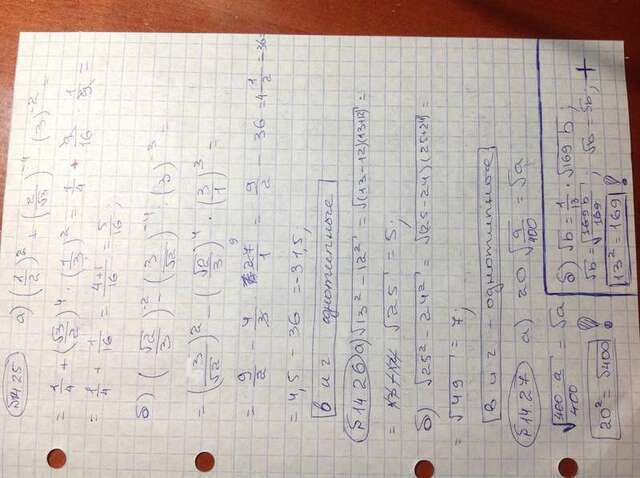 №1425 а) (1/2)² + (2/√3)⁻⁴ · (3)⁻² =
= 1/4 + (√3/2)⁴ · (1/3)² = 1/4 + 9/16 · 1/9 =
= 1/4 + 1/16 = 4+1/16 = 5/16;
б) (√2/3)⁻² - (3/√2)⁻⁴ · (3)⁻³
= (3/√2)² - (√2/3)⁴ · (3/1)³ =
= 9/2 - 4 · 27/1 = 9/2 - 36 = 4 1/2 - 36 =
= 4,5 - 36 = -31,5;
в и г однотипные
§1426 а) √13² - 12² = √(13-12)(13+12) =
= √25 = 5;
б) √25² - 24² = √(25-24)(25+24) =
= √49 = 7;
в и г - однотипное
§1427 а) 20 √a/400 = √a
√400 a/400 = √a
20² = √400 !
б) √b = 1/13 · √169 b;
√b = √169b/169; √b = √b; +
13² = 169 !